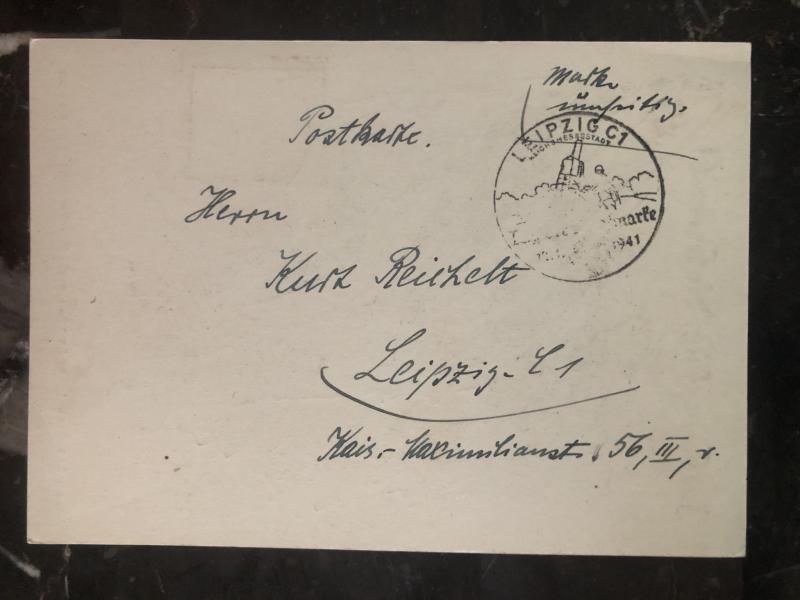 Marke
umseitig.
Postkarte.
LEIPZIG C1
REICHSMESSESTADT
marke
1941
Herrn
Kurt Reichelt
Leipzig-C1
Kais.-Maximilianst. 56, III, r.